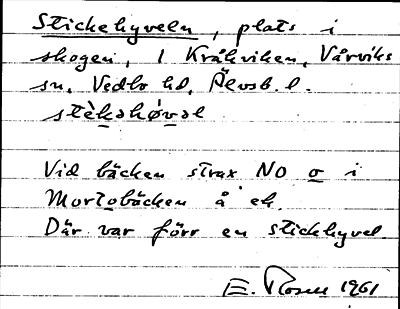 Stickehyveln, plats i
skogen, 1 Kråkviken, Vårviks
sn, Vedbo hd, Älvsb. l.
stèkəhó̤vəl
Vid bäcken strax NO o i
Mortobäcken å ek.
Där var förr en stickhyvel.
E. Rosen 1961